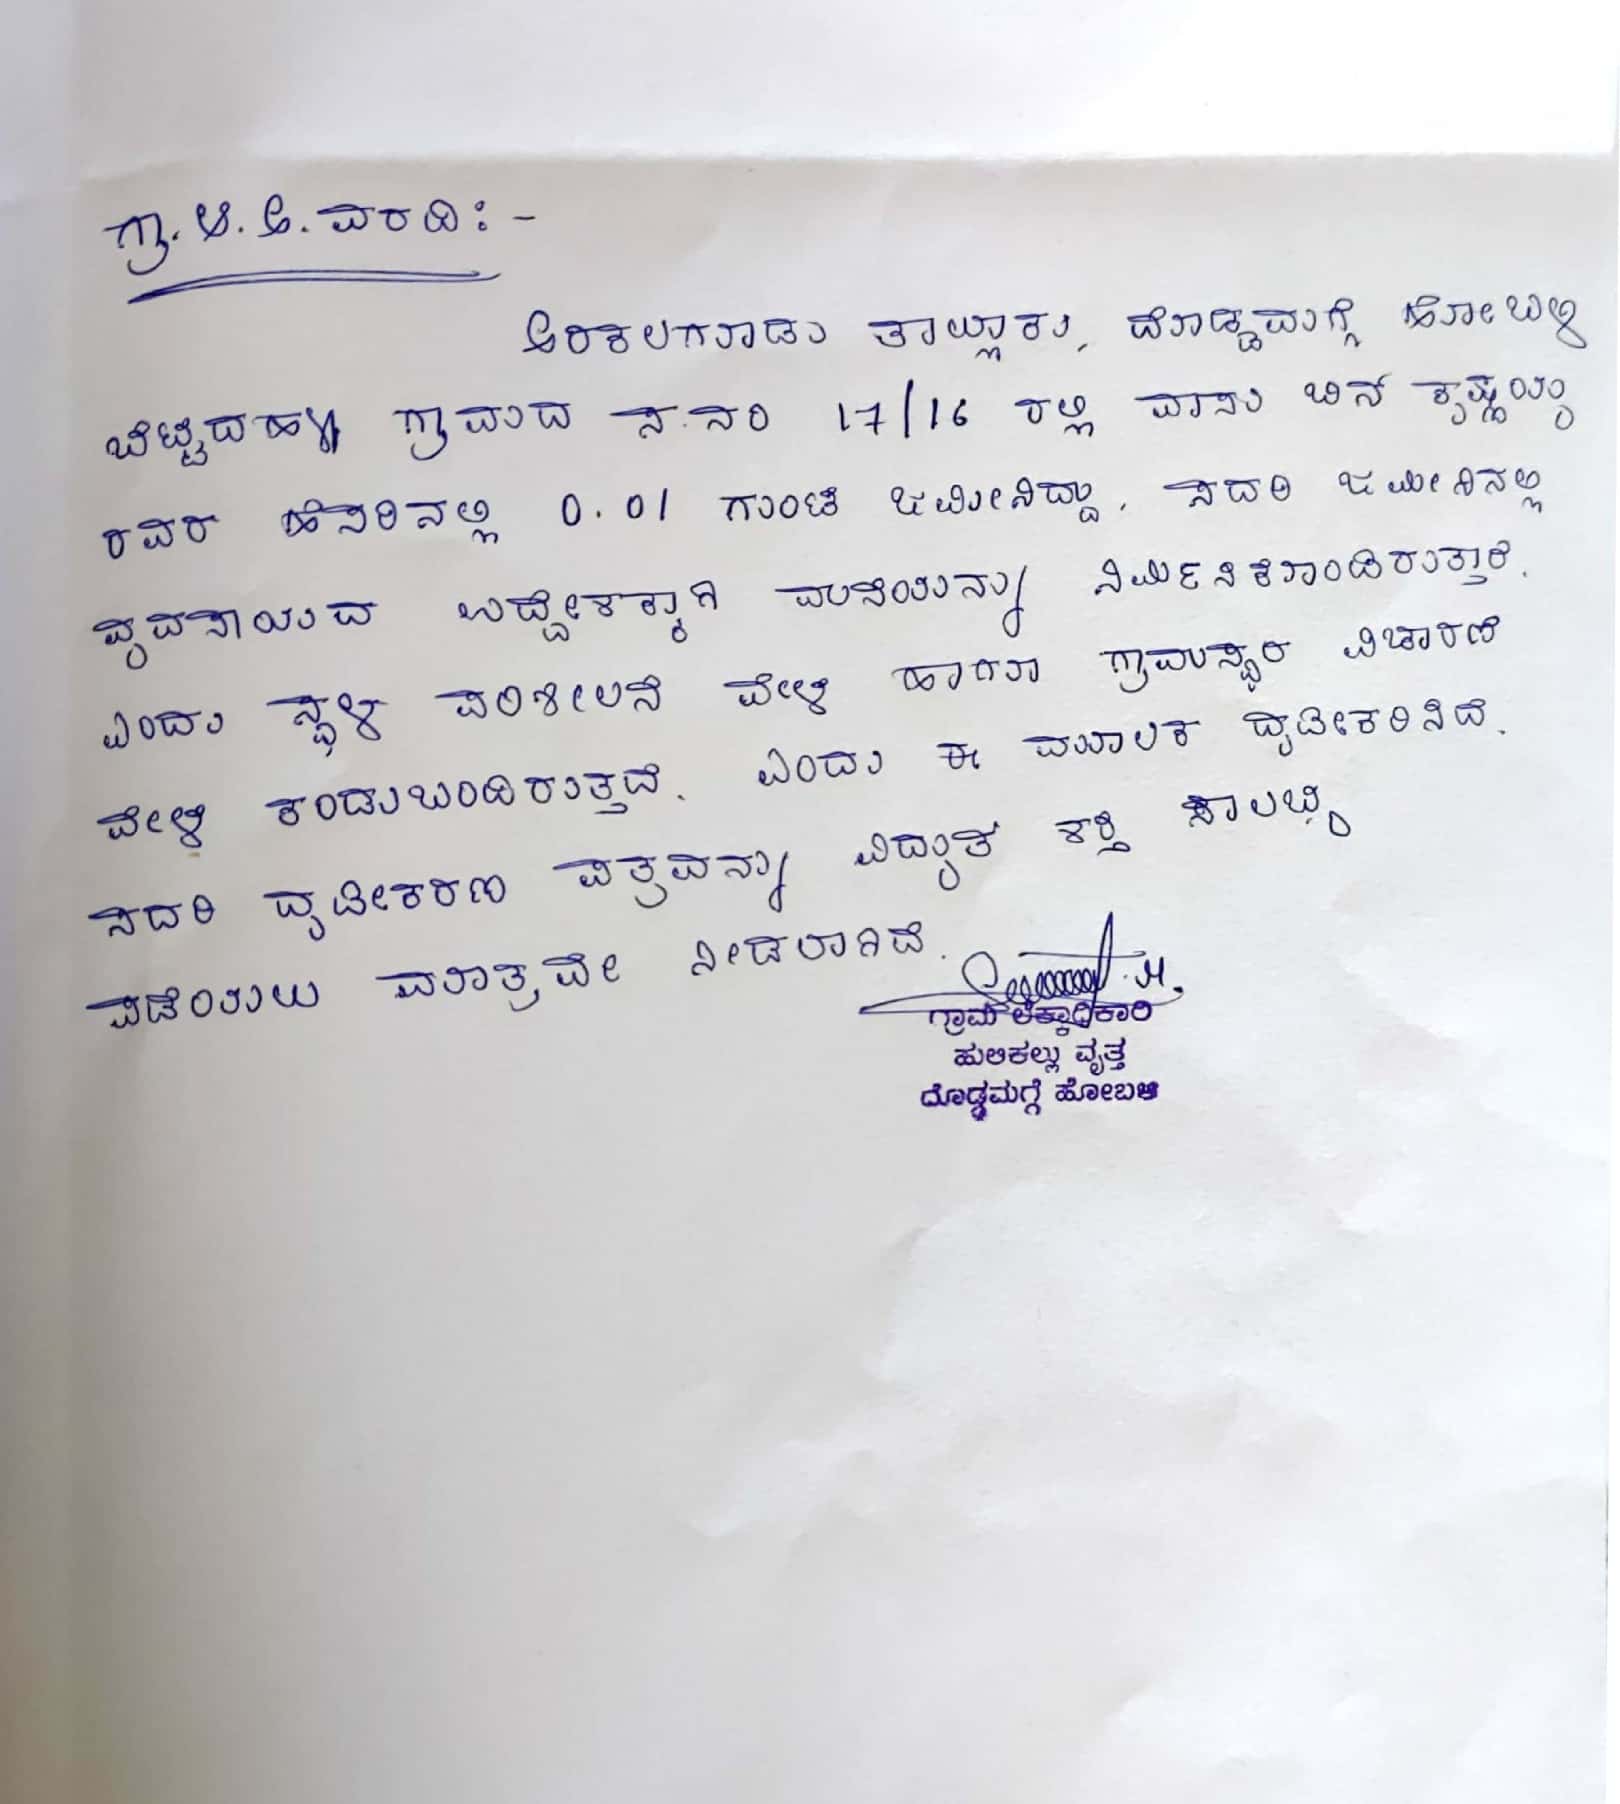 ಗ್ರಾ. ಆ. ಅ. ವರದಿ: -
ಅರಕಲಗೂಡು ತಾಲ್ಲೂಕು, ದೊಡ್ಡಮಗ್ಗೆ ಹೋಬಳಿ
ಬೆಟ್ಟದಹಳ್ಳಿ ಗ್ರಾಮದ ಸ.ನಂ 17/16 ರಲ್ಲಿ ವಾಸು ಬಿನ್ ಕೃಷ್ಣಯ್ಯ
ರವರ ಹೆಸರಿನಲ್ಲಿ 0.01 ಗುಂಟೆ ಜಮೀನಿದ್ದು, ಸದರಿ ಜಮೀನಿನಲ್ಲಿ
ವ್ಯವಸಾಯದ ಉದ್ದೇಶಕ್ಕಾಗಿ ಮನೆಯನ್ನು ನಿರ್ಮಿಸಿಕೊಂಡಿರುತ್ತಾರೆ.
ಎಂದು ಸ್ಥಳ ಪರಿಶೀಲನೆ ವೇಳೆ ಹಾಗೂ ಗ್ರಾಮಸ್ಥರ ವಿಚಾರಣೆ
ವೇಳೆ ಕಂಡುಬಂದಿರುತ್ತದೆ. ಎಂದು ಈ ಮೂಲಕ ದೃಢೀಕರಿಸಿದೆ.
ಸದರಿ ದೃಢೀಕರಣ ಪತ್ರವನ್ನು ವಿದ್ಯುತ ಶಕ್ತಿ ಸೌಲಭ್ಯ
ಪಡೆಯಲು ಮಾತ್ರವೇ ನೀಡಲಾಗಿದೆ.
ಗ್ರಾಮ ಲೆಕ್ಕಾಧಿಕಾರಿ
ಹುಲಿಕಲ್ಲು ವೃತ್ತ
ದೊಡ್ಡಮಗ್ಗೆ ಹೋಬಳಿ